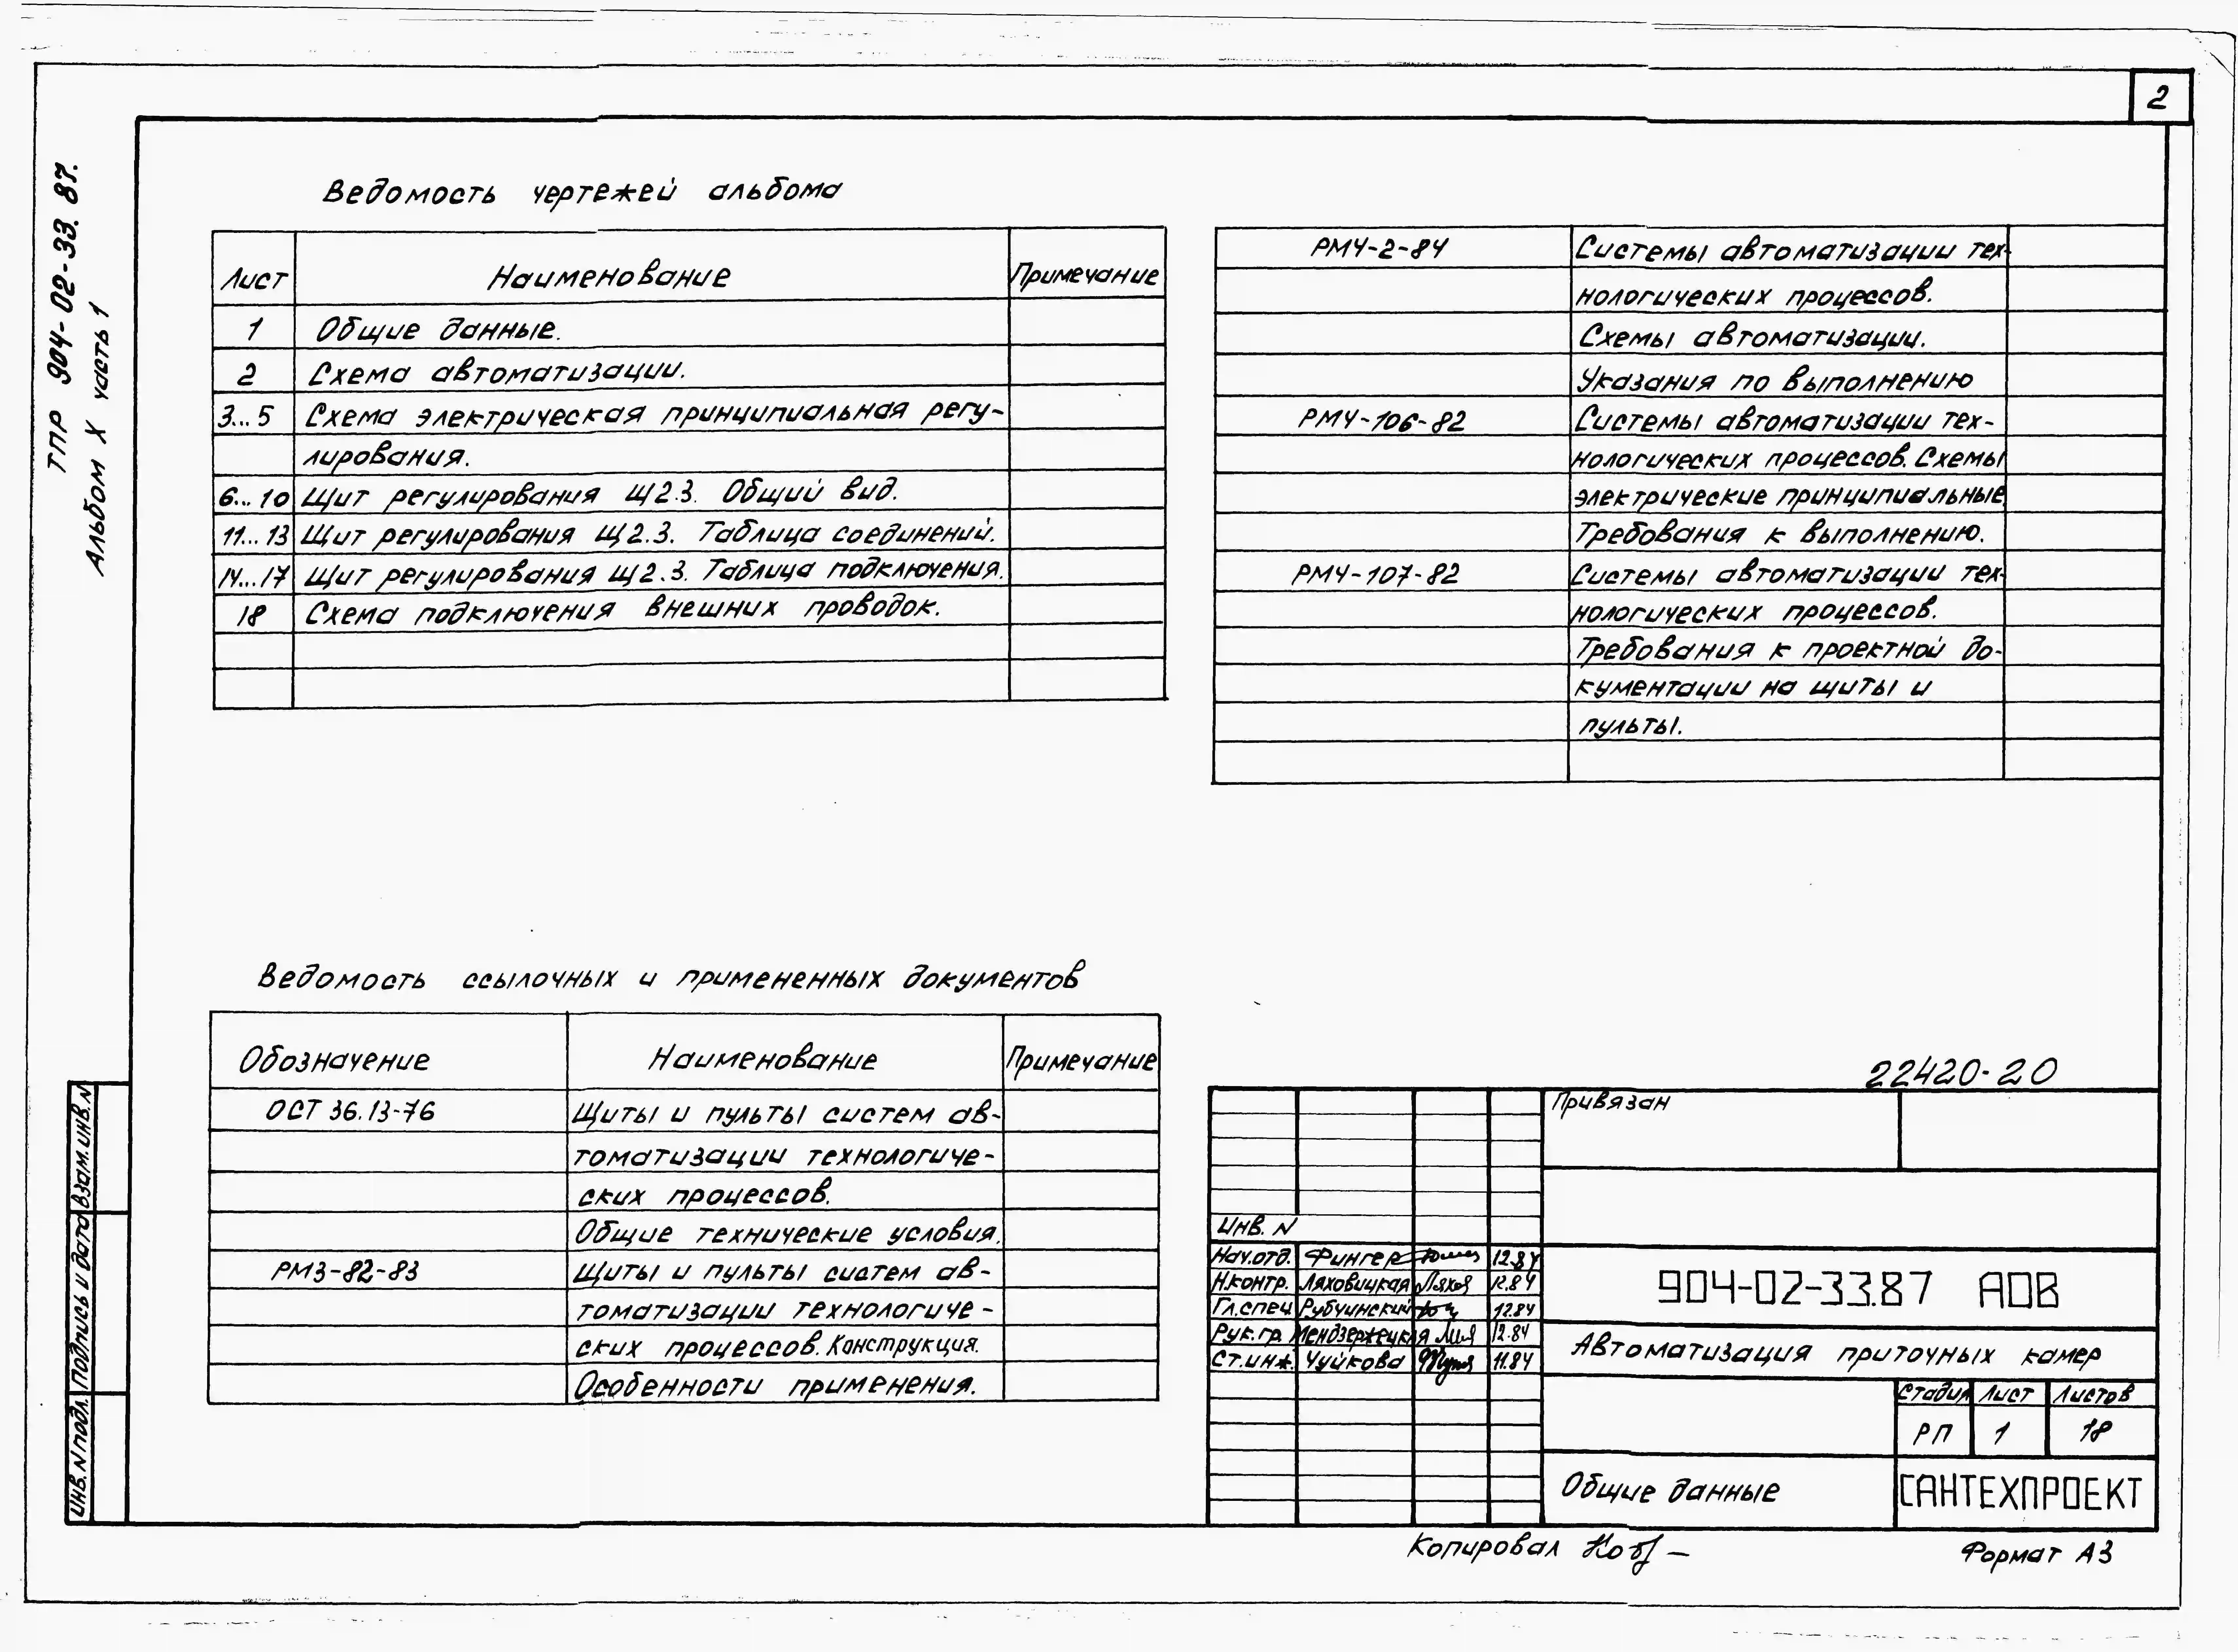 2
ТПР 904-02-33.87.
Альбом X часть 1
Ведомость чертежей альбома
Лист Наименование Примечание
1 Общие данные.
2 Схема автоматизации.
3...5 Схема электрическая принципиальная регу-
лирования.
6...10 Щит регулирования Щ2.3. Общий вид.
11...13 Щит регулирования Щ2.3. Таблица соединений.
14...17 Щит регулирования Щ2.3. Таблица подключения.
18 Схема подключения внешних проводок.
РМ4-2-84 Системы автоматизации тех-
нологических процессов.
Схемы автоматизации.
Указания по выполнению
РМ4-106-82 Системы автоматизации тех-
нологических процессов. Схемы
электрические принципиальные
Требования к выполнению.
РМ4-107-82 Системы автоматизации тех-
нологических процессов.
Требования к проектной до-
кументации на щиты и
пульты.
Ведомость ссылочных и примененных документов
Обозначение Наименование Примечание
ОСТ 36.13-76 Щиты и пульты систем ав-
томатизации технологиче-
ских процессов.
Общие технические условия.
РМ3-82-83 Щиты и пульты систем ав-
томатизации технологиче-
ских процессов. Конструкция.
Особенности применения.
22420-20
Привязан
Инв. N
Нач.отд. Фингер 12.84
Н.контр. Ляховицкая 12.84
Гл.спец Рубчинский 12.84
Рук.гр. Мендзержецкая 12.84
Ст.инж. Чуйкова 11.84
904-02-33.87 АОВ
Автоматизация приточных камер
Стадия Лист Листов
РП 1 18
Общие данные
САНТЕХПРОЕКТ
Инв. N подл. Подпись и дата Взам. инв. N
Копировал
Формат А3